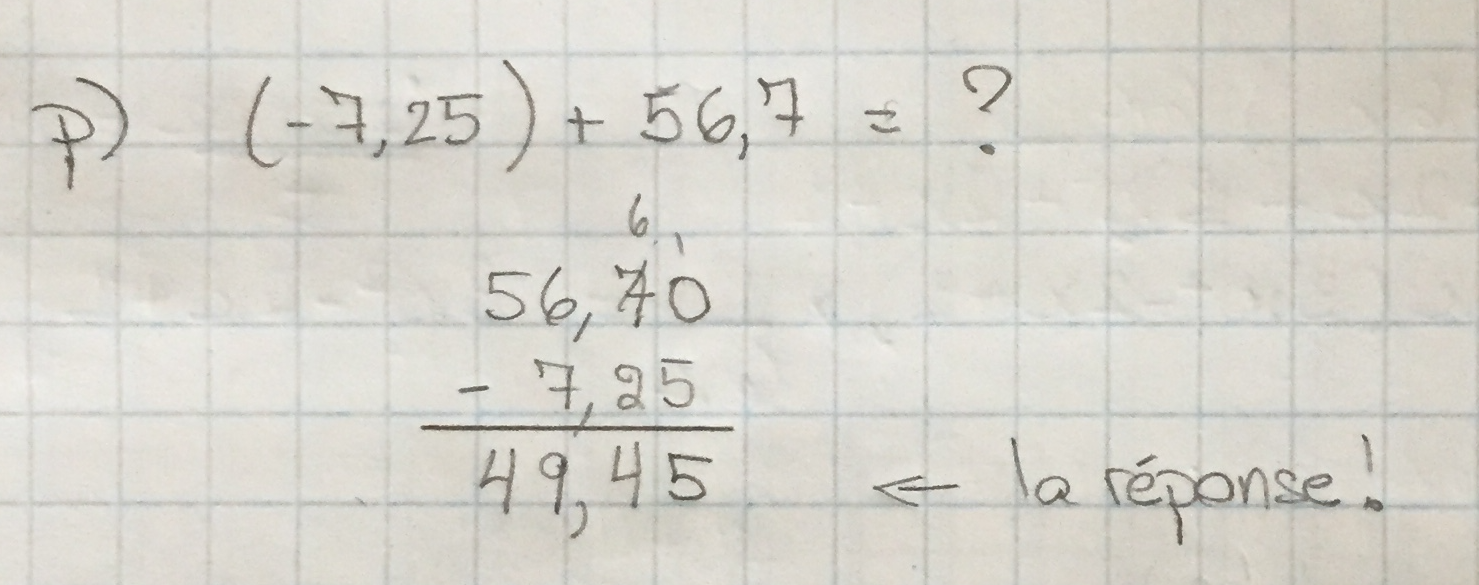 p) (-7,25) + 56,7 = ?
6 1
56,70
- 7,25
49,45 ← la réponse!